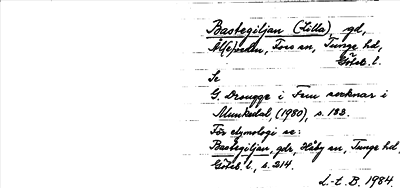 Bastegiljan (Lilla), gd,
Fors sn, Tunge hd,
Göteb. l.
Se
G. Drougge i Fem socknar i
Munkedal, (1980), s. 183.
För etymologi se:
Bastegiljan, gdr, Håby sn, Tunge hd,
Göteb. l., s. 214.
L.-t. B. 1984.